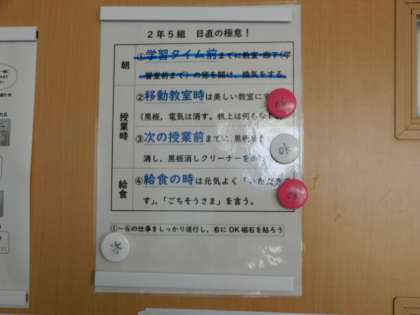 ２年５組　日直の極意！
朝
①学習タイム前までに教室・廊下（
習室前まで）の窓を開け、換気をする。
授業時
②移動教室時は美しい教室に
（黒板，電気は消す。机上は何も
③次の授業前までに黒板
消し，黒板消しクリーナーを
給食
④給食の時は元気よく「いただきま
す」，「ごちそうさま」を言う。
①～④の仕事をしっかり遂行し，右にOK磁石を貼ろう